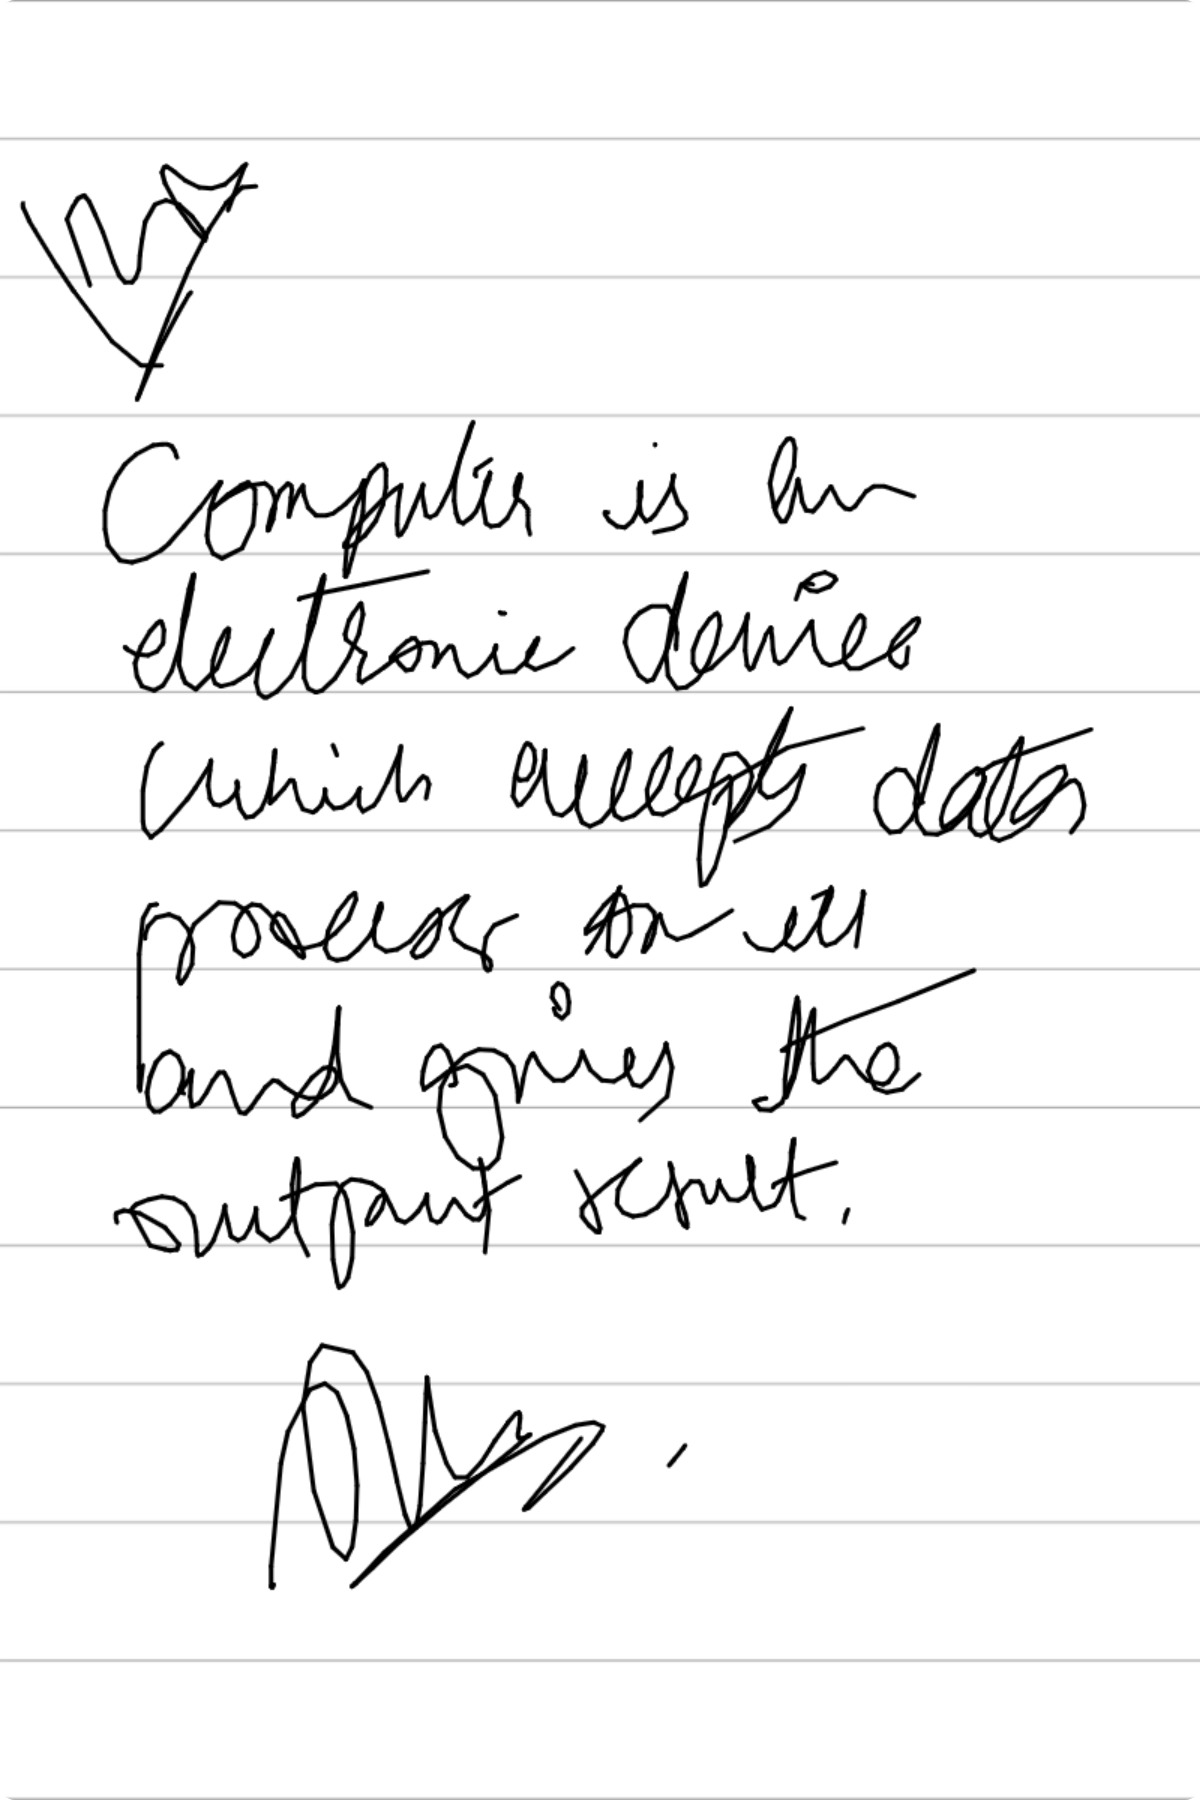 Computer is an
electronic device
which accepts data
process on it
and gives the
output result.